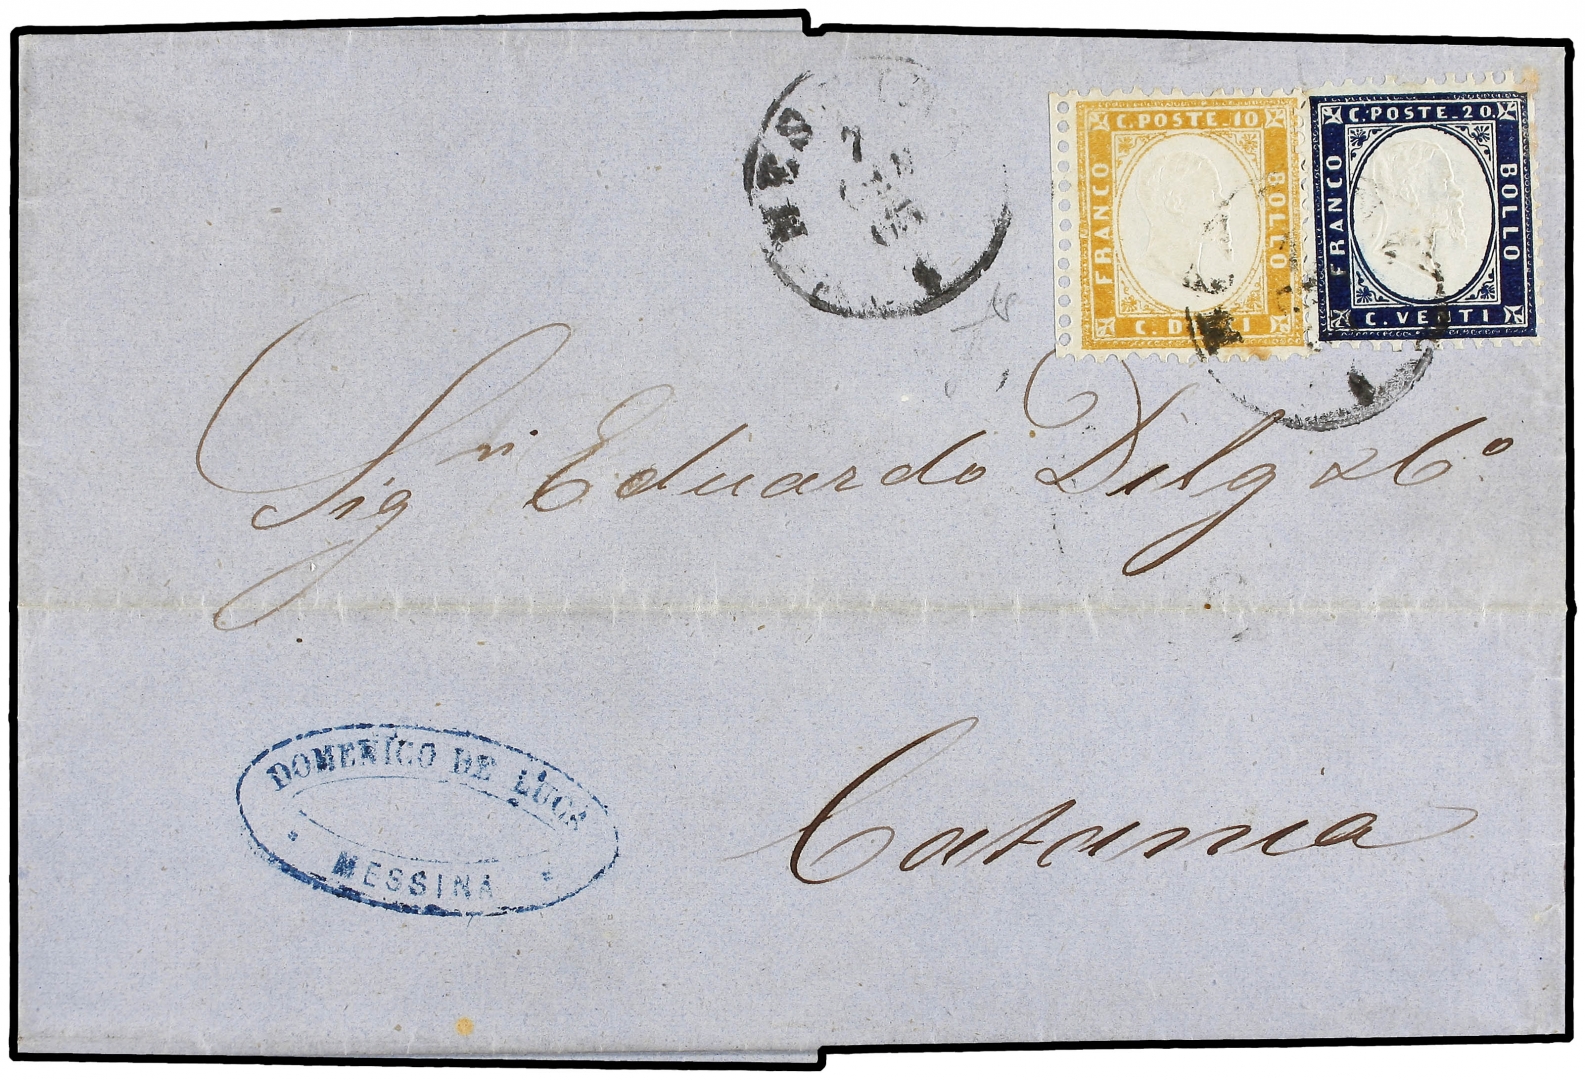 C. POSTE. 10
FRANCO
BOLLO
C. DIECI
C. POSTE. 20.
FRANCO
BOLLO
C. VENTI
7
Sigri Eduardo Dilg & Co
Catania
DOMENICO DE LUCA
MESSINA